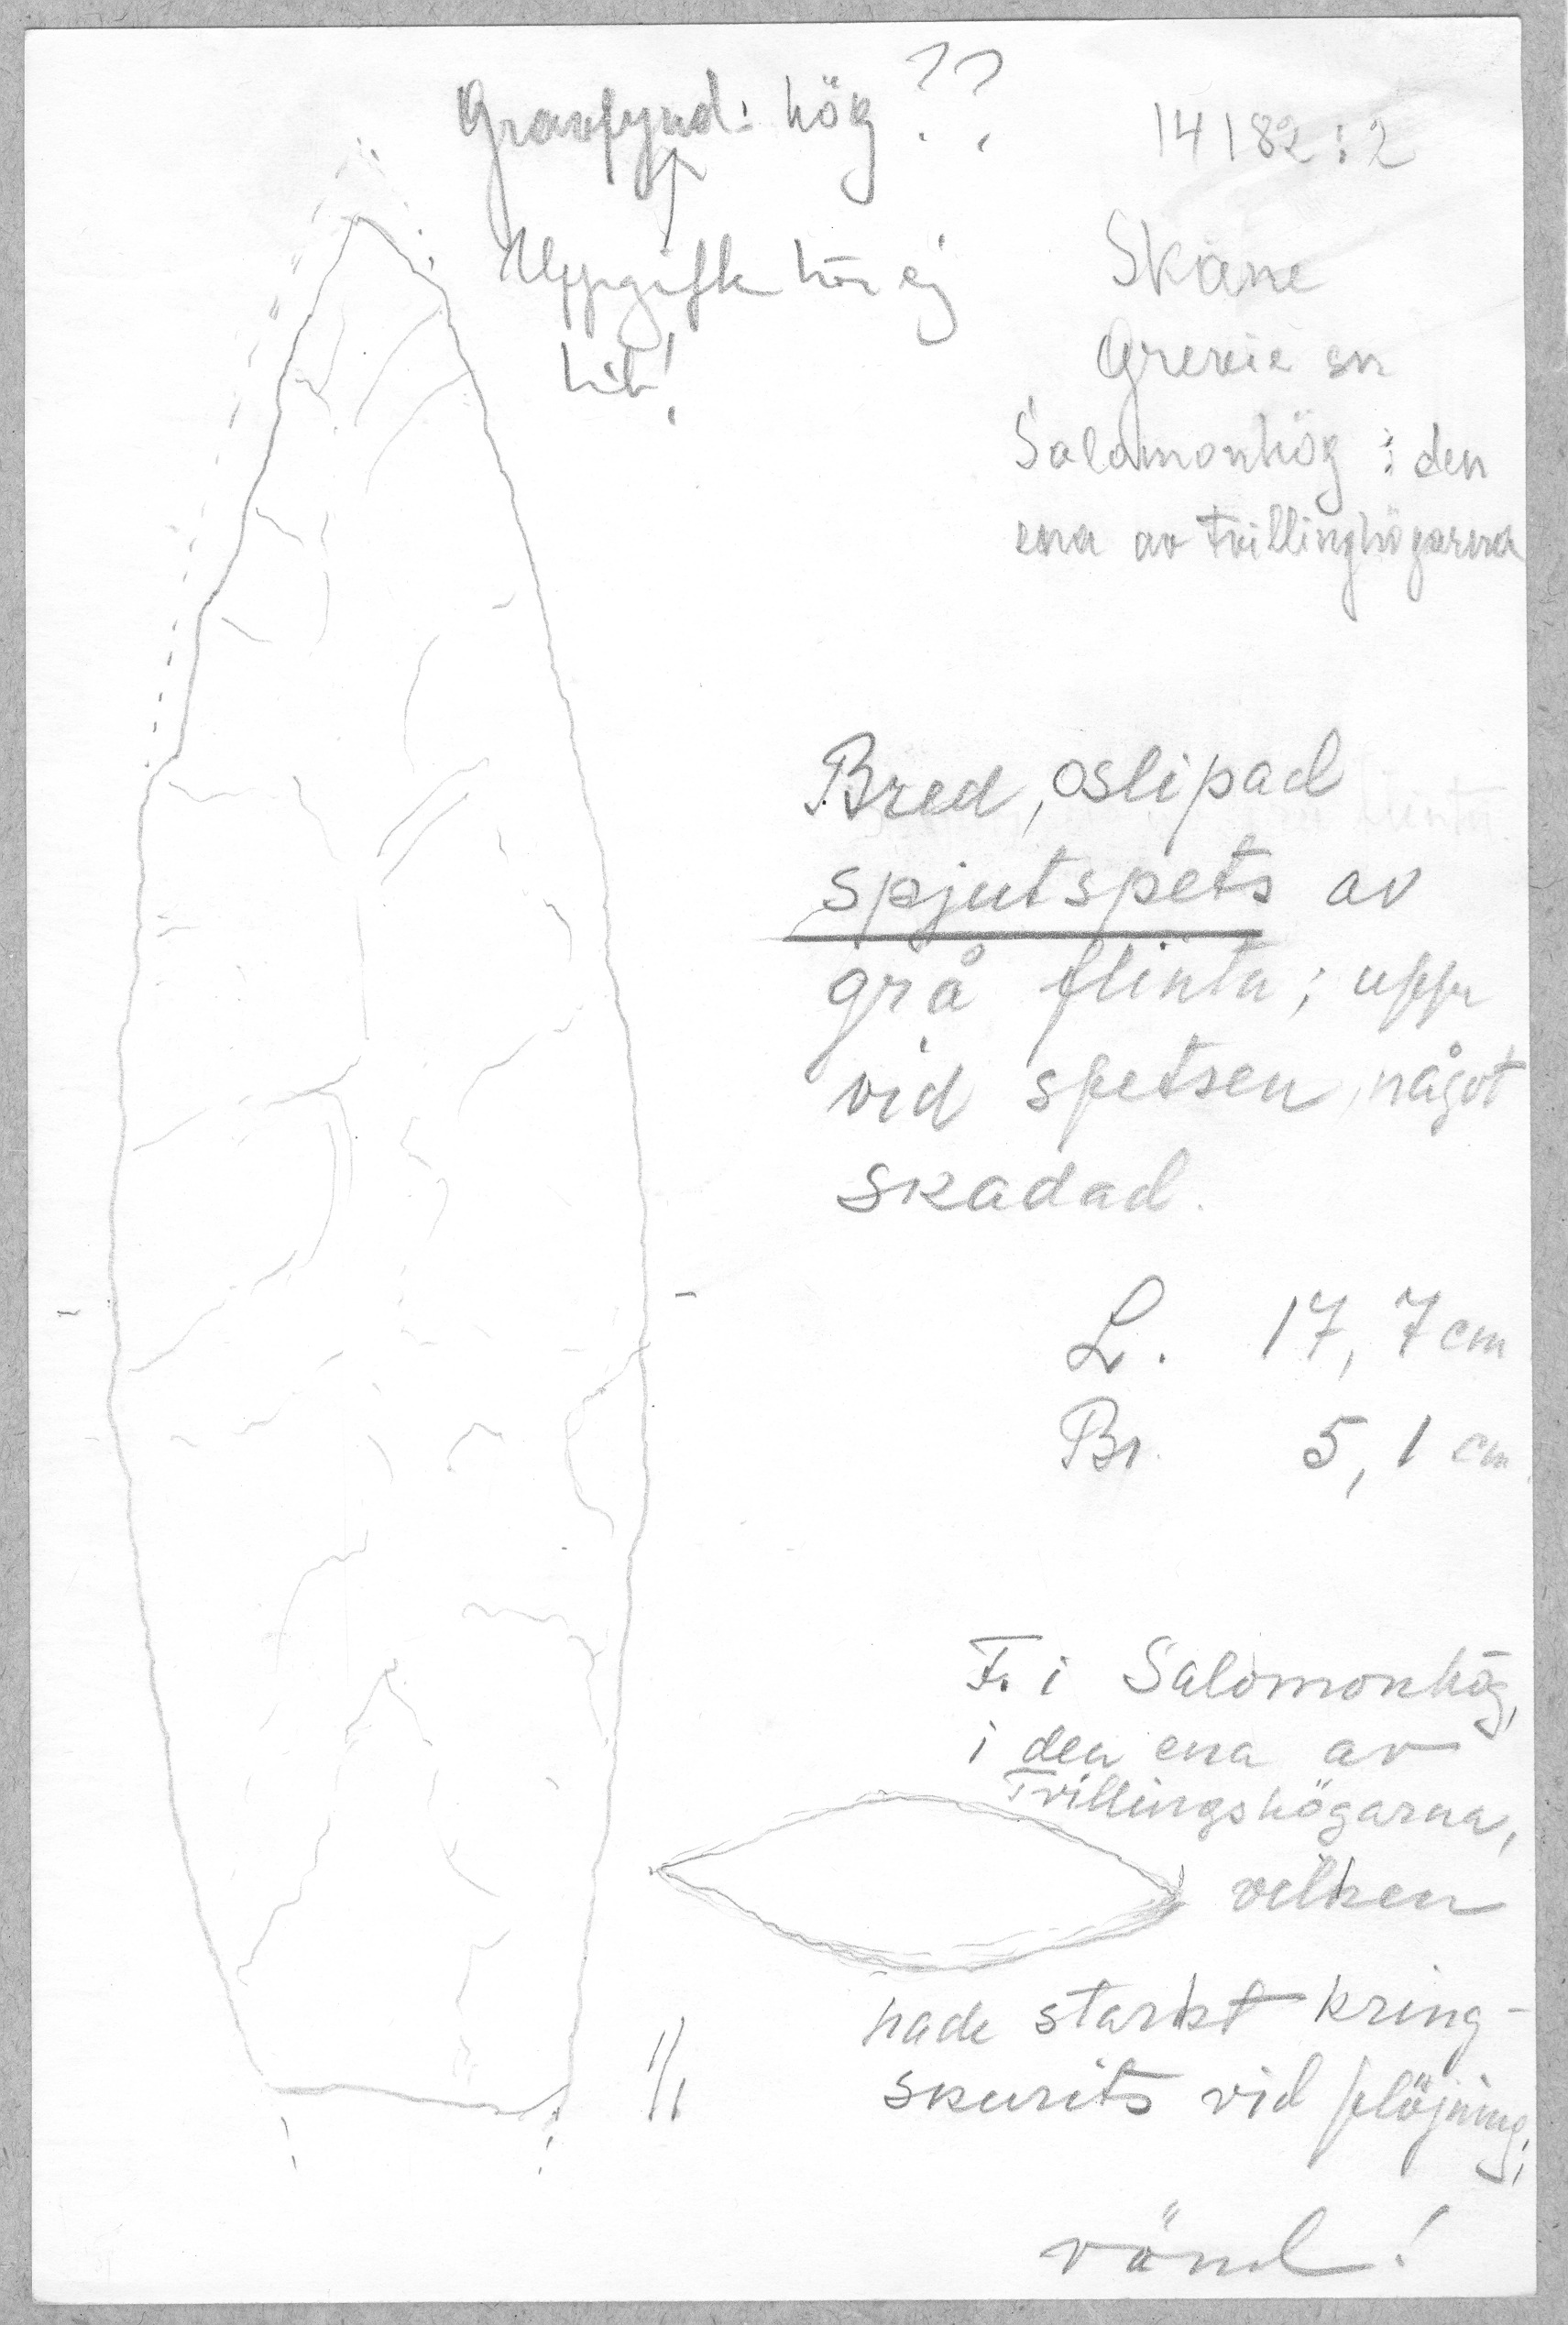 Gravfynd: hög ??
14182:2
Uppgift hör ej
hit!
Skåne
Grevie sn
Salomonhög i den
ena av Tvillinghögarna
Bred, oslipad
spjutspets av
grå flinta; uppe
vid spetsen något
skadad.
L. 17,7 cm
Br. 5,1 cm
F. i Salomonhög,
i den ena av
Tvillingshögarna,
vilken
hade starkt kring-
skurits vid plöjning;
1/1
vänd!